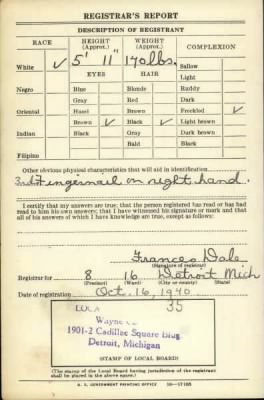 REGISTRAR'S REPORT
DESCRIPTION OF REGISTRANT
RACE
HEIGHT (Approx.)
WEIGHT (Approx.)
COMPLEXION
White ✓
5' 11"
170 lbs.
Sallow
Light
EYES
HAIR
Negro
Blue
Blonde
Ruddy
Gray
Red
Dark
Oriental
Hazel
Brown
Freckled ✓
Brown ✓
Black ✓
Light brown
Indian
Black
Gray
Dark brown
Bald
Black
Filipino
Other obvious physical characteristics that will aid in identification
3rd Fingernail on right hand.
I certify that my answers are true; that the person registered has read or has had
read to him his own answers; that I have witnessed his signature or mark and that
all of his answers of which I have knowledge are true, except as follows:
Frances Dale
(Signature of registrar)
Registrar for 8 16 Detroit Mich
(Precinct) (Ward) (City or county) (State)
Date of registration Oct. 16, 1940
35
Wayne
1901-2 Cadillac Square Bldg
Detroit, Michigan
(STAMP OF LOCAL BOARD)
(The stamp of the Local Board having jurisdiction of the registrant
shall be placed in the above space.)
U. S. GOVERNMENT PRINTING OFFICE